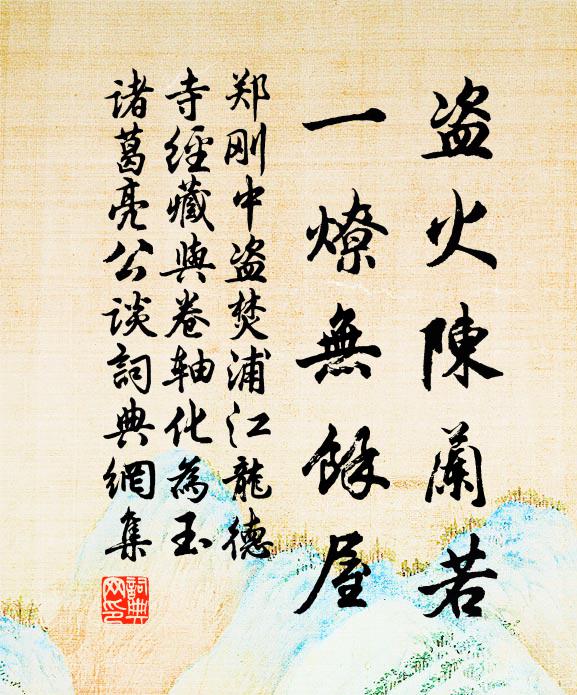 盗火陳蘭若
一燎無餘屋
郑刚中盗焚浦江龍德
寺經藏與卷轴化為玉
诸葛亮公谈詞典網集
詞典網印